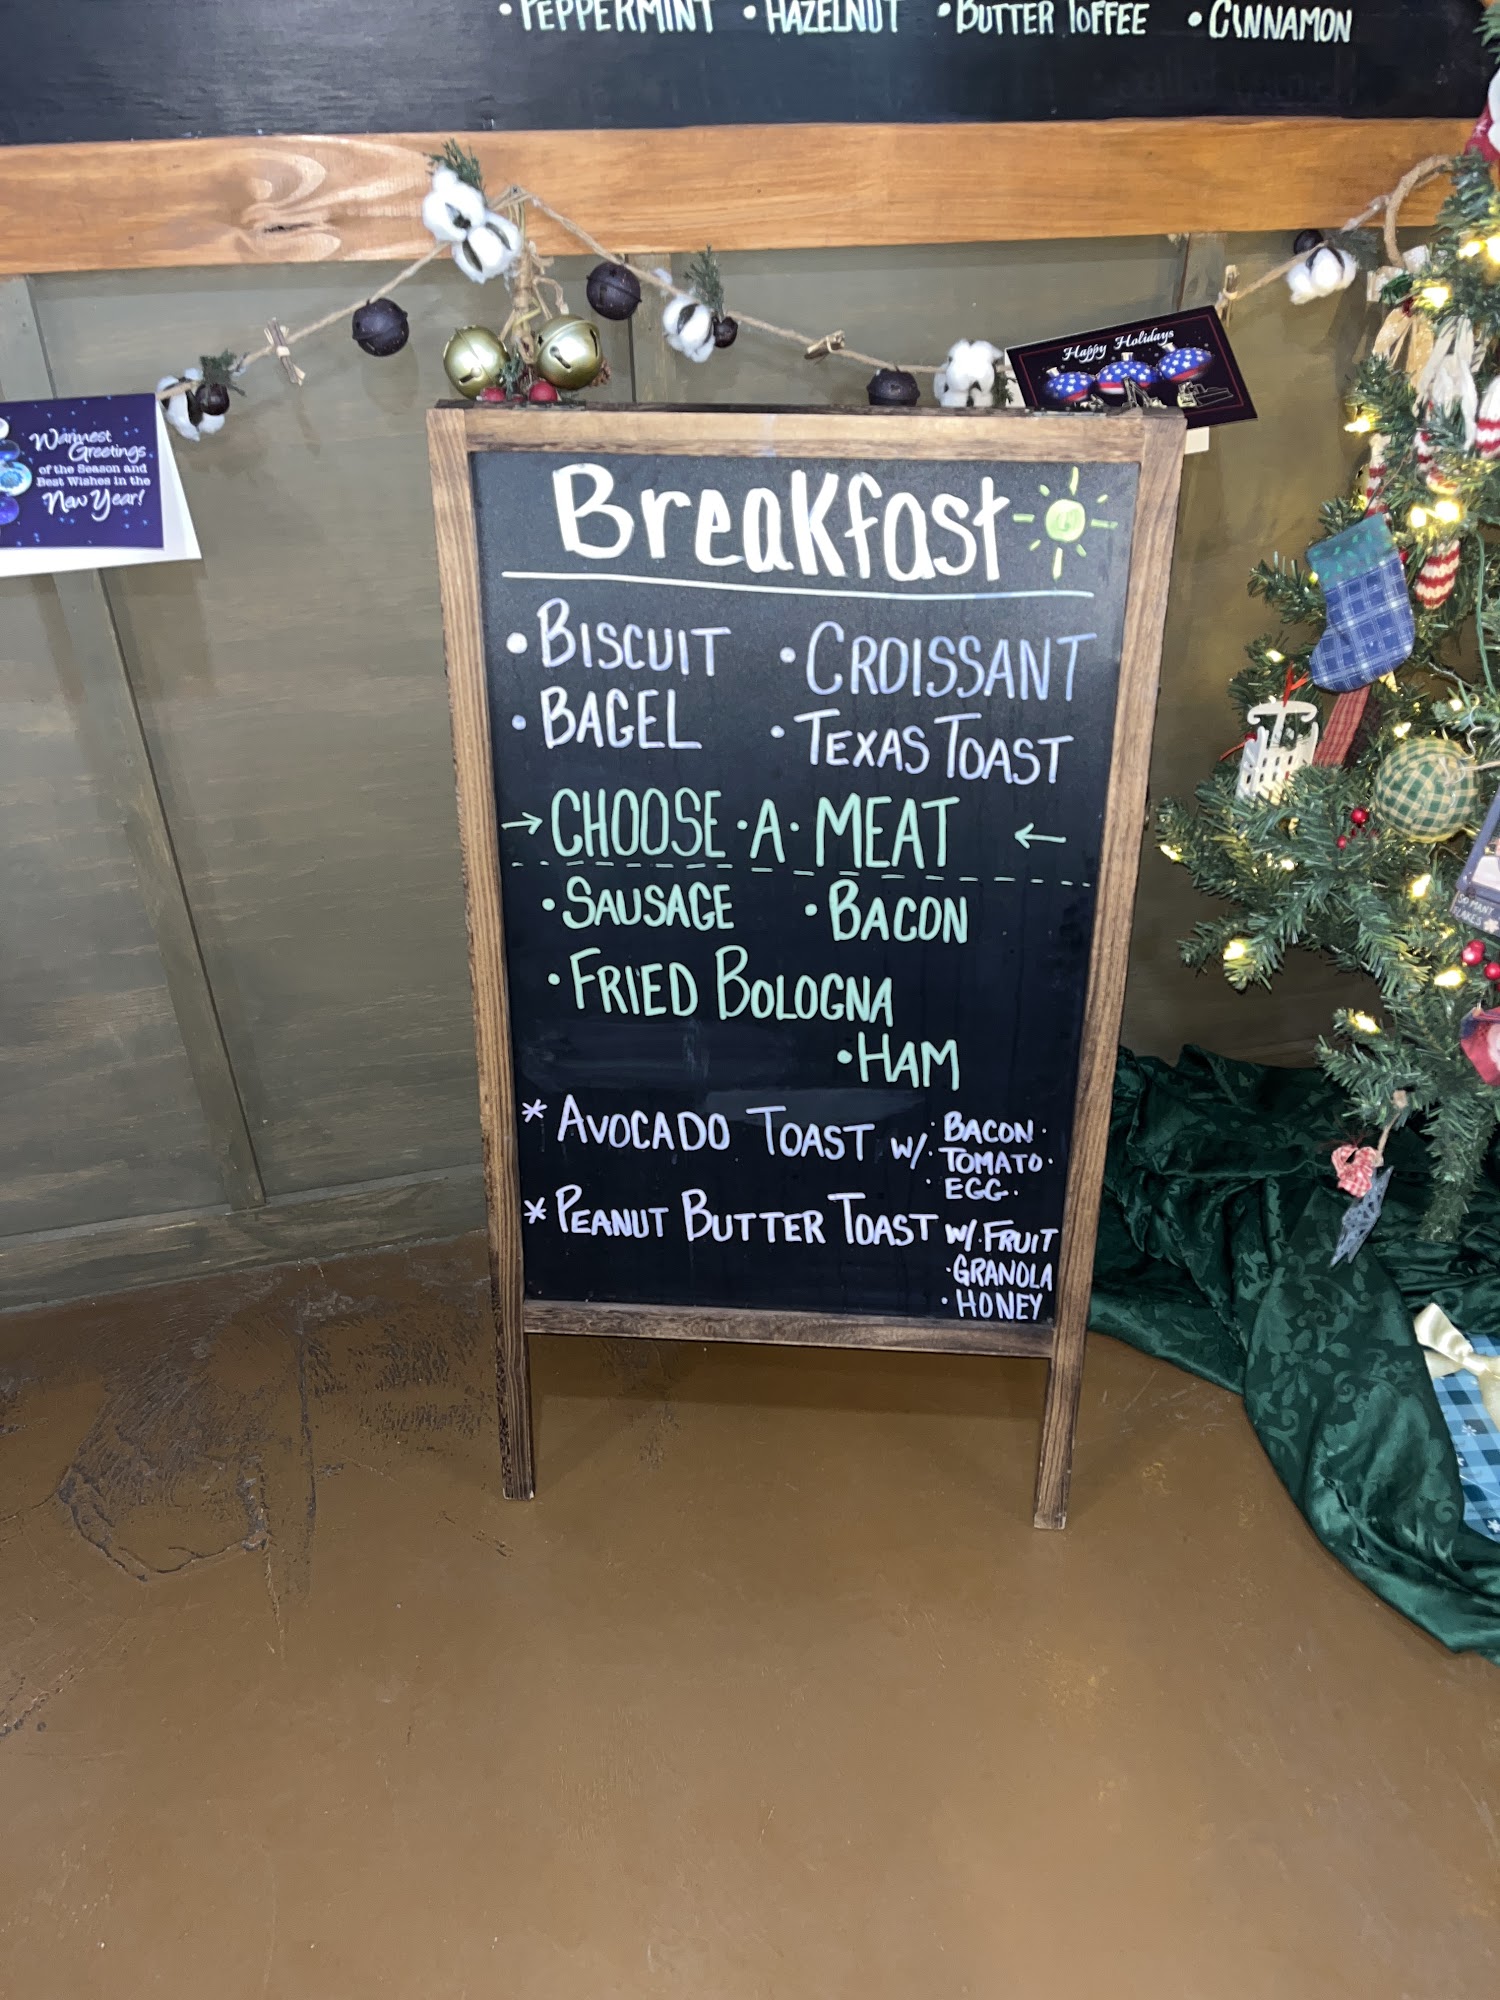 • PEPPERMINT • HAZELNUT • BUTTER TOFFEE • CINNAMON
Happy Holidays
Warmest
Greetings
of the Season and
Best Wishes in the
New Year!
Breakfast
• BISCUIT • CROISSANT
• BAGEL • TEXAS TOAST
→ CHOOSE · A · MEAT ←
• SAUSAGE • BACON
• FRIED BOLOGNA
• HAM
* AVOCADO TOAST w/ · BACON ·
· TOMATO ·
· EGG ·
* PEANUT BUTTER TOAST w/ · FRUIT
· GRANOLA
· HONEY
SO MANY
FLAKES